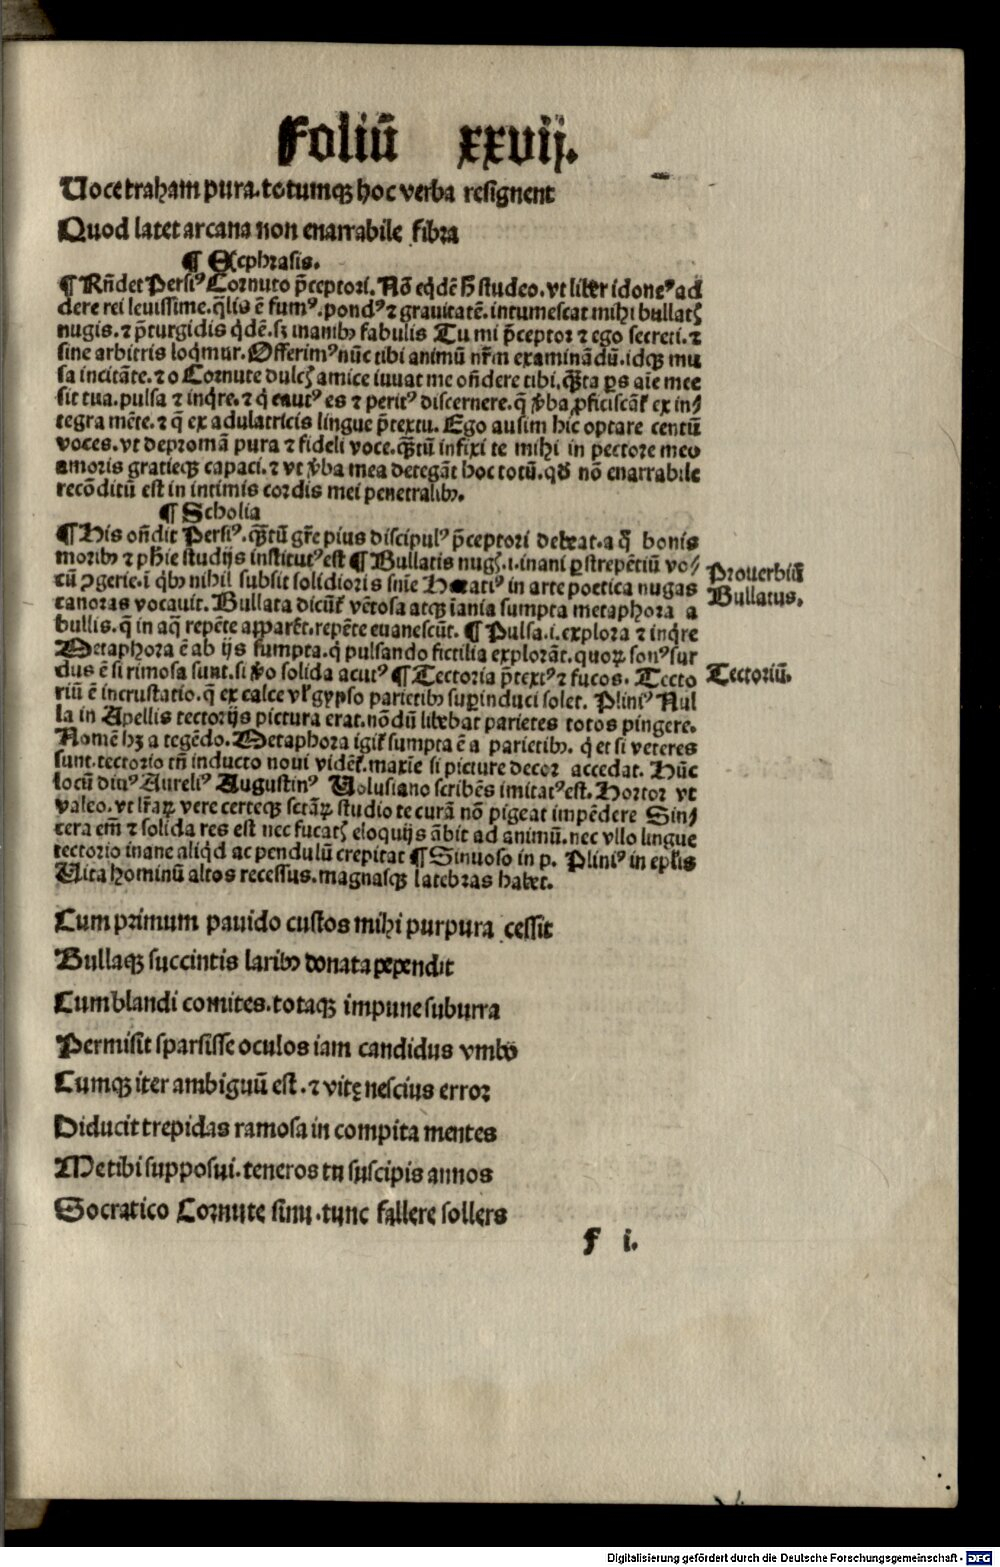 Foliū xxvij.
Uoce traham pura. totumqȝ hoc verba resignent
Quod latet arcana non enarrabile fibra
¶ Ecphrasis.
¶ Rñdet Persiꝰ Cornuto p̄ceptori. Nō eqdē h̄ studeo. vt liber idoneꝰ ad
dere rei leuissime. q̄lis ē fumꝰ. pondꝰ ⁊ grauitatē. intumescat mihi bullatꝭ
nugis. ⁊ p̄turgidis qdē. sȝ inanibꝰ fabulis Tu mi p̄ceptor ⁊ ego secreti. ⁊
sine arbitris loqmur. Offerimꝰ nūc tibi animū nr̄m examinādū. idqȝ mu
sa incitāte. ⁊ o Cornute dulcꝭ amice iuuat me oñdere tibi. q̄ꝫta ꝑs aīe mee
sit tua. pulsa ⁊ inqre. ⁊ q cautꝰ es ⁊ peritꝰ discernere. q̄ v̓ba ꝓficiscāt̄ ex in⸗
tegra mēte. ⁊ q̄ ex adulatricis lingue p̄textu. Ego ausim hic optare centū
voces. vt depromā pura ⁊ fideli voce. q̄ꝫtū infixi te mihi in pectore meo
amoris gratieqȝ capaci. ⁊ vt v̓ba mea detegāt hoc totū. qd̄ nō enarrabile
recōditū est in intimis cordis mei penetralibꝰ.
¶ Scholia
¶ His oñdit Persiꝰ. q̄ꝫtū gr̄e pius discipulꝰ p̄ceptori debeat. a q̄ bonis
moribꝰ ⁊ ph̄ie studijs institutꝰ est ¶ Bullatis nugꝭ. i. inani ꝑstrepētiū vo⸗
cū ꝯgerie. ī qbꝰ nihil subsit solidioris snīe Horatiꝰ in arte poetica nugas
canoras vocauit. Bullata dicūt̄ vētosa atqȝ īania sumpta metaphora a
bullis. q̄ in aq̄ repēte apparēt. repēte euanescūt. ¶ Pulsa. i. explora ⁊ inqre
Metaphora ē ab ijs sumpta. q pulsando fictilia explorāt. quoꝝ sonꝰ sur
dus ē si rimosa sunt. si v̓o solida acutꝰ ¶ Tectoria p̄textꝰ ⁊ fucos. Tecto
riū ē incrustatio. q̄ ex calce vl̓ gypso parietibꝰ suꝑinduci solet. Pliniꝰ Nul
la in Apellis tectorijs pictura erat. nōdū libebat parietes totos pingere.
Nomē hȝ a tegēdo. Metaphora igit̄ sumpta ē a parietibꝰ. q et si veteres
sunt. tectorio tn̄ inducto noui vidēt̄. maxīe si picture decor accedat. Hūc
locū diuꝰ Aureliꝰ Augustinꝰ Uolusiano scribēs imitatꝰ est. Hortor vt
valeo. vt lr̄aꝝ vere certeqȝ sctāꝝ studio te curā nō pigeat impēdere Sin⸗
cera em̄ ⁊ solida res est nec fucatꝭ eloquijs ābit ad animū. nec vllo lingue
tectorio inane aliqd ac pendulū crepitat ¶ Sinuoso in p. Pliniꝰ in epl̄is
Uita hominū altos recessus. magnasqȝ latebras habet.
Prouerbiū
Bullatus.
Tectoriū.
Cum primum pauido custos mihi purpura cessit
Bullaqȝ succintis laribꝰ donata pependit
Cum blandi comites. totaqȝ impune suburra
Permisit sparsisse oculos iam candidus vmbo
Cumqȝ iter ambiguū est. ⁊ vitę nescius error
Diducit trepidas ramosa in compita mentes
Me tibi supposui. teneros tu suscipis annos
Socratico Cornute sinu. tunc fallere sollers
f i.
Digitalisierung gefördert durch die Deutsche Forschungsgemeinschaft - DFG